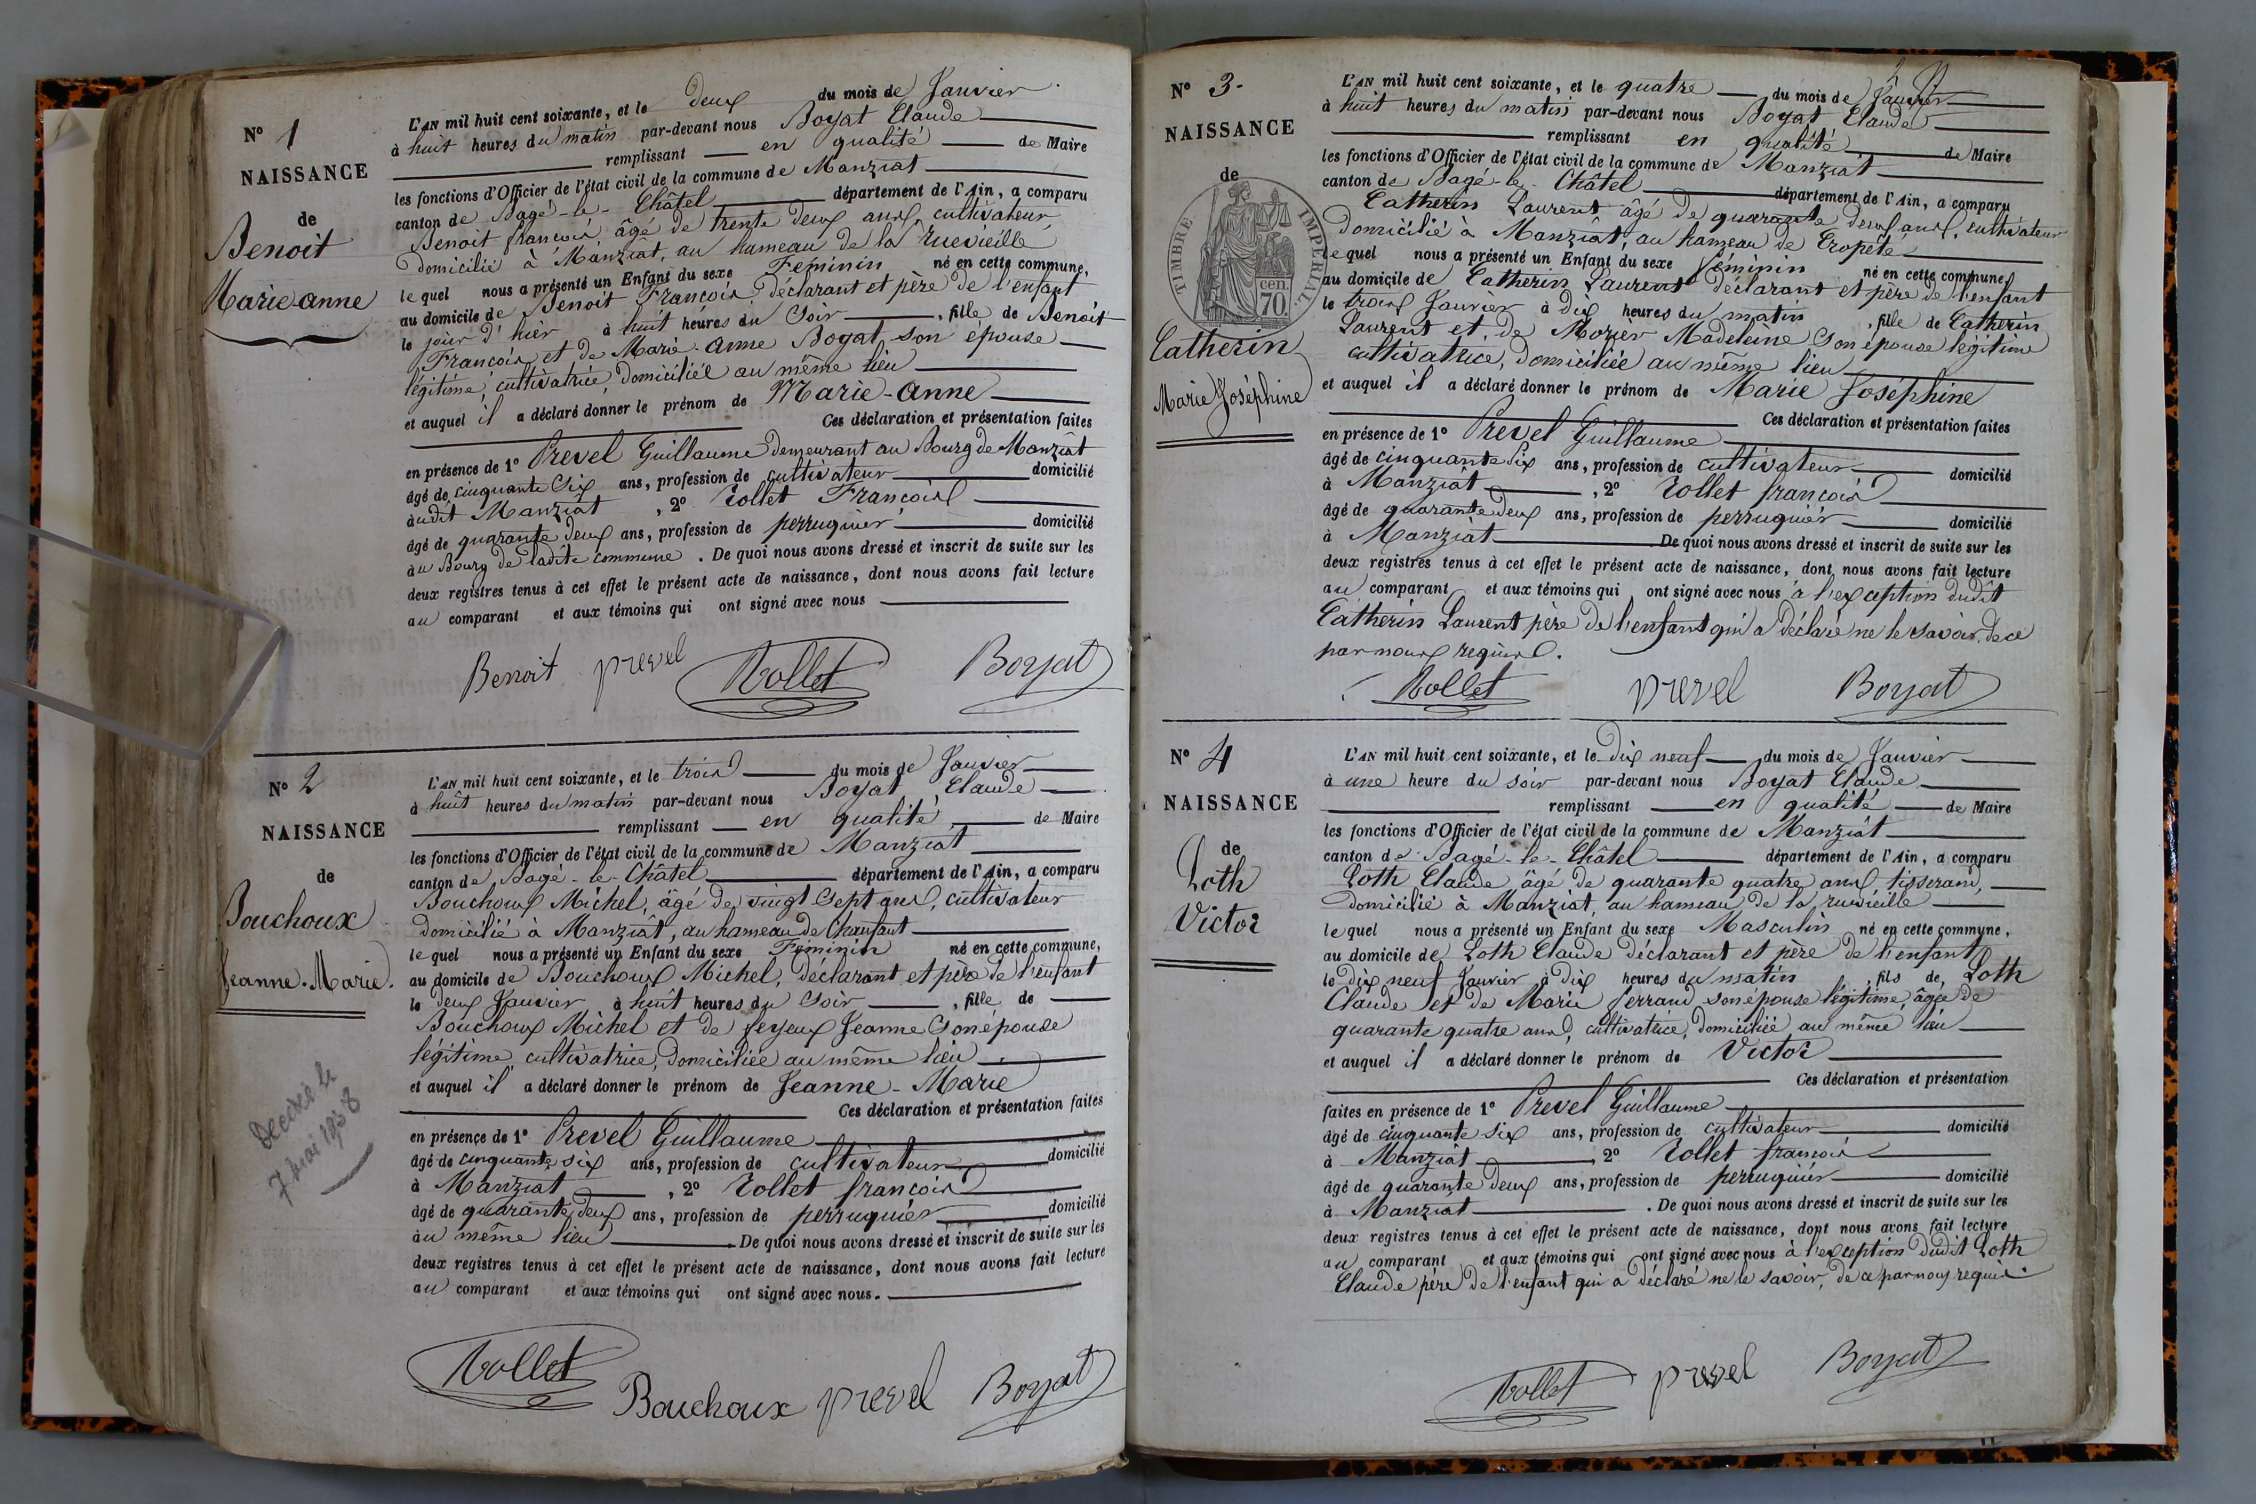 N° 1
NAISSANCE
de
Benoit
Marie anne
L'AN mil huit cent soixante, et le deux du mois de Janvier
à huit heures du matin par-devant nous Boyat Claude
remplissant en qualité de Maire
les fonctions d'Officier de l'état civil de la commune de Manziat
canton de Bagé-le-Châtel département de l'Ain, a comparu
Benoit françois âgé de trente deux ans, cultivateur
domicilié à Manziât, au hameau de la ruevieille
lequel nous a présenté un Enfant du sexe Féminin né en cette commune,
au domicile de Benoit François, déclarant et père de l'enfant
le jour d'hier à huit heures du Soir, fille de Benoît
François et de Marie-Anne Boyat, son épouse
légitime, cultivatrice, domiciliée au même lieu
et auquel il a déclaré donner le prénom de Marie-Anne
Ces déclaration et présentation faites
en présence de 1° Prevel Guillaume demeurant au Bourg de Manziat
âgé de cinquante Six ans, profession de cultivateur domicilié
audit Manziat, 2° Rollet François
âgé de quarante deux ans, profession de perruquier domicilié
au Bourg de ladite commune. De quoi nous avons dressé et inscrit de suite sur les
deux registres tenus à cet effet le présent acte de naissance, dont nous avons fait lecture
au comparant et aux témoins qui ont signé avec nous
Benoit prevel Rollet Boyat
N° 2
NAISSANCE
de
Bouchoux
Jeanne-Marie.
Decedée le
7 Mai 1938
L'AN mil huit cent soixante, et le trois du mois de Janvier
à huit heures du matin par-devant nous Boyat Claude
remplissant en qualité de Maire
les fonctions d'Officier de l'état civil de la commune de Manziat
canton de Bagé-le-Châtel département de l'Ain, a comparu
Bouchoux Michel, âgé de vingt Sept ans, cultivateur
domicilié à Manziât, au hameau de Chanfant
lequel nous a présenté un Enfant du sexe Féminin né en cette commune,
au domicile de Bouchoux Michel, déclarant et père de l'enfant
le deux Janvier à huit heures du Soir, fille de
Bouchoux Michel et de feyeux Jeanne Son épouse
légitime, cultivatrice, domiciliée au même lieu
et auquel il a déclaré donner le prénom de Jeanne-Marie
Ces déclaration et présentation faites
en présence de 1° Prevel Guillaume
âgé de cinquante six ans, profession de cultivateur domicilié
à Manziat, 2° Rollet françois
âgé de quarante deux ans, profession de perruquier domicilié
au même lieu De quoi nous avons dressé et inscrit de suite sur les
deux registres tenus à cet effet le présent acte de naissance, dont nous avons fait lecture
au comparant et aux témoins qui ont signé avec nous.
Rollet Bouchoux prevel Boyat
N° 3.
NAISSANCE
de
TIMBRE IMPÉRIAL
70 cen.
Catherin
Marie Joséphine
L'AN mil huit cent soixante, et le quatre du mois de Janvier
à huit heures du matin par-devant nous Boyat Claude
remplissant en qualité de Maire
les fonctions d'Officier de l'état civil de la commune de Manziat
canton de Bagé-le-Châtel département de l'Ain, a comparu
Catherin Laurent âgé de quarante deux ans, cultivateur
domicilié à Manziât, au hameau de Cropéte
lequel nous a présenté un Enfant du sexe féminin né en cette commune
au domicile de Catherin Laurent déclarant et père de l'enfant
le trois Janvier à dix heures du matin, fille de Catherin
Laurent et de Morier Madeleine Son épouse légitime
cultivatrice, domiciliée au même lieu
et auquel il a déclaré donner le prénom de Marie Joséphine
Ces déclaration et présentation faites
en présence de 1° Prevel Guillaume
âgé de cinquante Six ans, profession de cultivateur domicilié
à Manziât, 2° Rollet françois
âgé de quarante deux ans, profession de perruquier domicilié
à Manziât De quoi nous avons dressé et inscrit de suite sur les
deux registres tenus à cet effet le présent acte de naissance, dont nous avons fait lecture
au comparant et aux témoins qui ont signé avec nous à l'exception dudit
Catherin Laurent père de l'enfant qui a déclaré ne le savoir, de ce
par nous requis.
Rollet prevel Boyat
N° 4
NAISSANCE
de
Loth
Victor
L'AN mil huit cent soixante, et le dix neuf du mois de Janvier
à une heure du soir par-devant nous Boyat Claude
remplissant en qualité de Maire
les fonctions d'Officier de l'état civil de la commune de Manziât
canton de Bagé-le-Châtel département de l'Ain, a comparu
Loth Claude âgé de quarante quatre ans, tisserand,
domicilié à Manziat, au hameau de la ruevieille
lequel nous a présenté un Enfant du sexe Masculin né en cette commune,
au domicile de Loth Claude déclarant et père de l'enfant
le dix neuf Janvier à dix heures du matin, fils de Loth
Claude et de Marie ferrand son épouse légitime, âgée de
quarante quatre ans, cultivatrice, domiciliée au même lieu
et auquel il a déclaré donner le prénom de Victor
Ces déclaration et présentation
faites en présence de 1° Prevel Guillaume
âgé de cinquante six ans, profession de cultivateur domicilié
à Manziât, 2° Rollet françois
âgé de quarante deux ans, profession de perruquier domicilié
à Manziat. De quoi nous avons dressé et inscrit de suite sur les
deux registres tenus à cet effet le présent acte de naissance, dont nous avons fait lecture
au comparant et aux témoins qui ont signé avec nous à l'exception dudit Loth
Claude père de l'enfant qui a déclaré ne le savoir, de ce par nous requis.
Rollet prevel Boyat